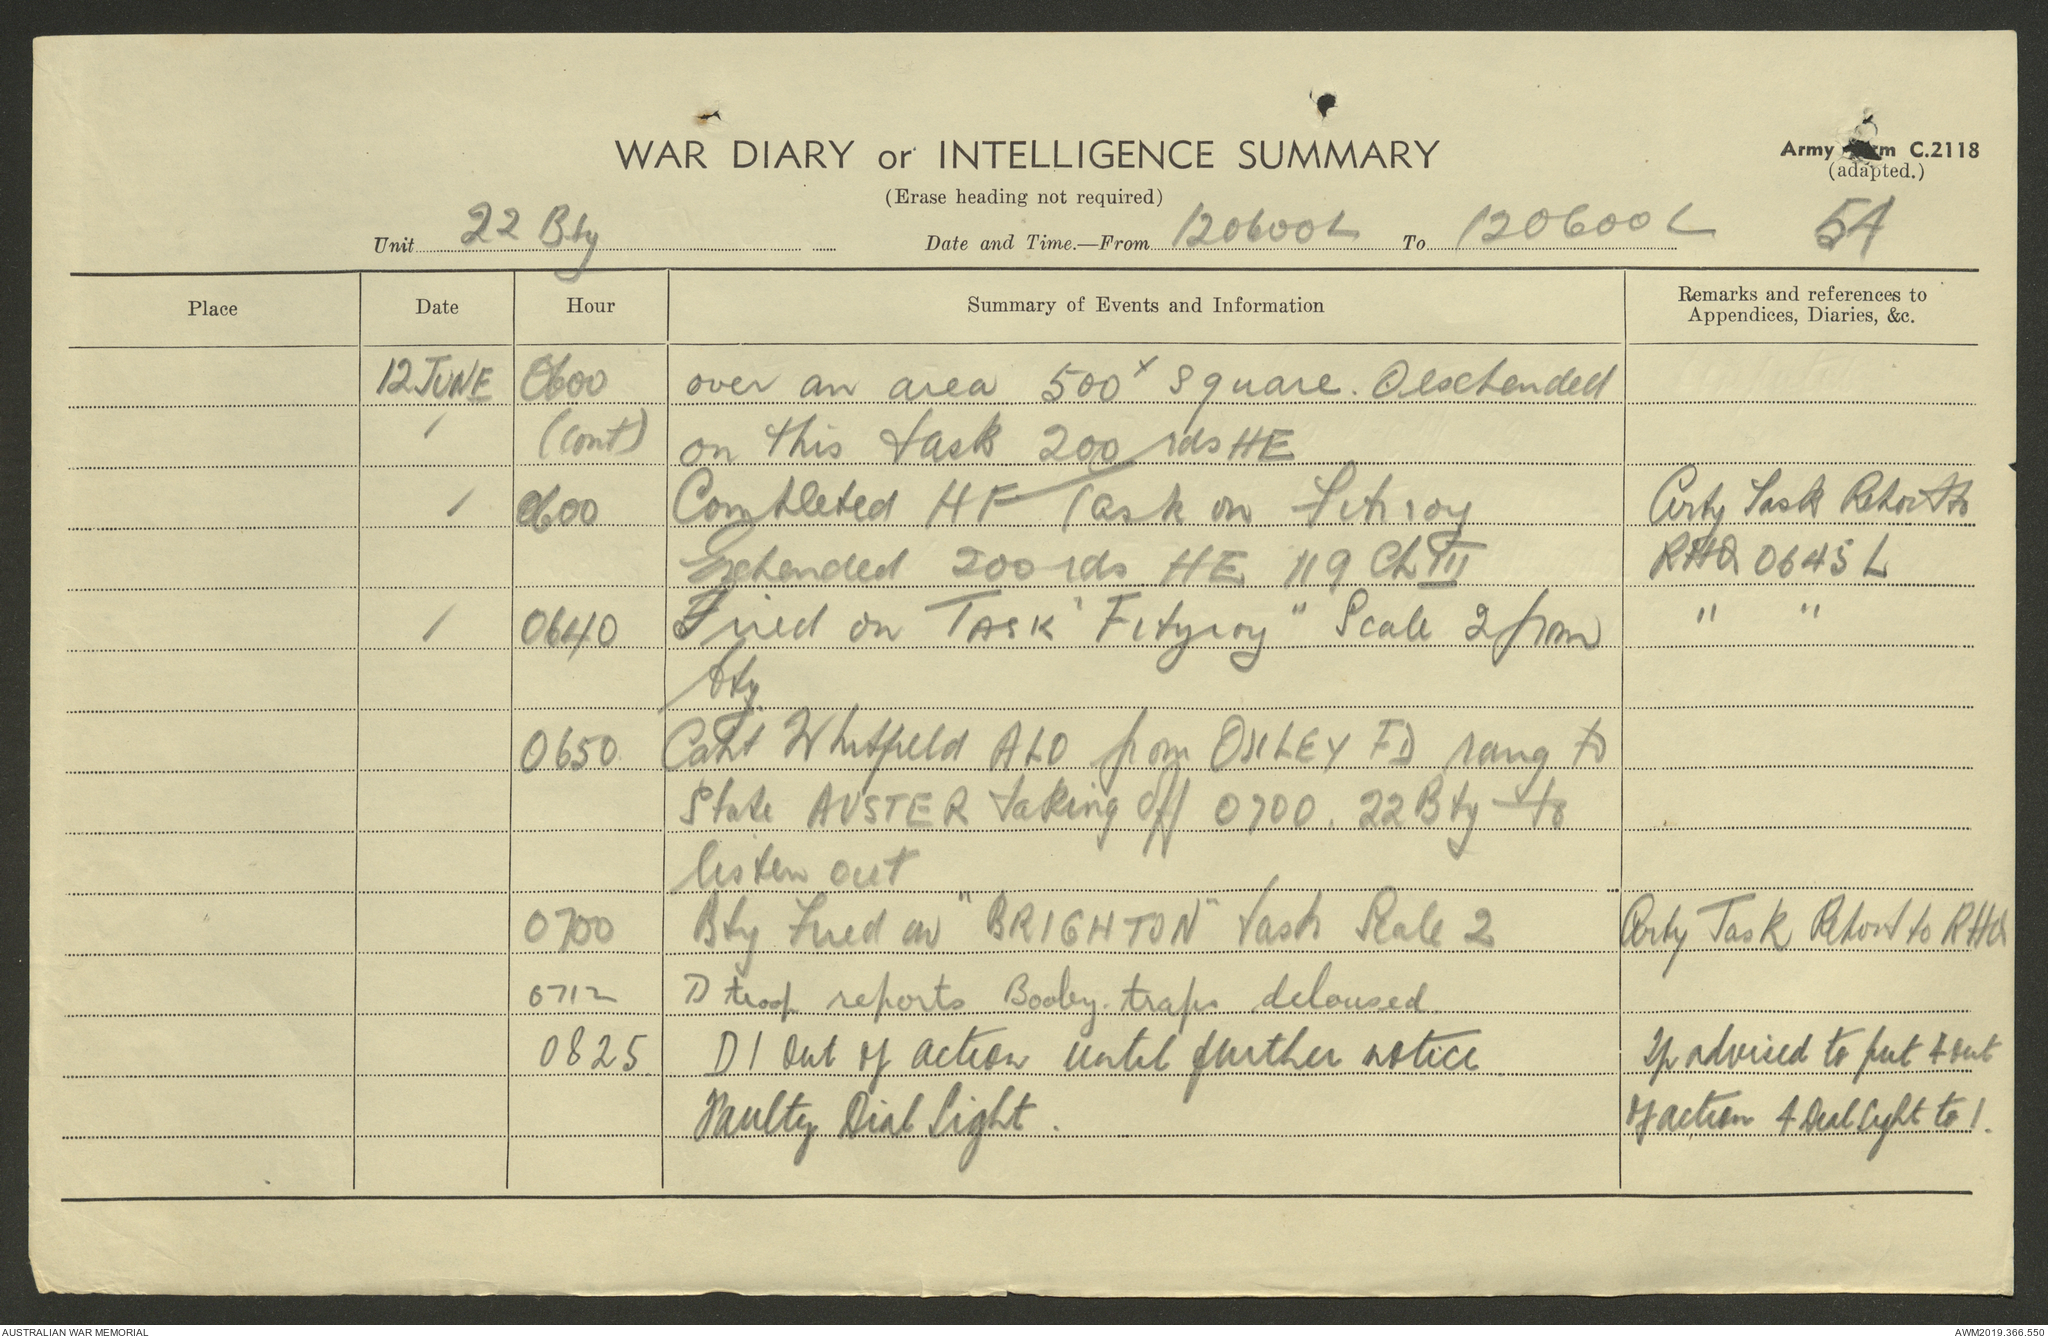 WAR DIARY or INTELLIGENCE SUMMARY
Army Form C.2118
(adapted.)
(Erase heading not required)
54
Unit 22 Bty Date and Time.—From 120600L To 120600L
Place Date Hour Summary of Events and Information Remarks and references to
Appendices, Diaries, &c.
12 JUNE 0600 over an area 500x square. Oexpended
(cont) on this task 200 rds HE
0600 Completed HF Task on Fitzroy Arty Task Report to
Expended 200 rds HE 119 Ch III RHQ 0645 L
0640 Fired on TASK "Fitzroy" Scale 2 from " "
bty.
0650. Capt Whitfield ALO from OXLEY FD rang to
State AUSTER taking off 0700. 22 Bty to
listen out
0700 Bty Fired on "BRIGHTON" task Scale 2 Arty Task Report to RHQ
0712 D troop reports Booby-traps deloused.
0825. D1 Out of action until further notice. Ip advised to put 4 out
Faulty Dial Sight. of action 4 Dial Sight to 1.
AUSTRALIAN WAR MEMORIAL
AWM2019.366.550